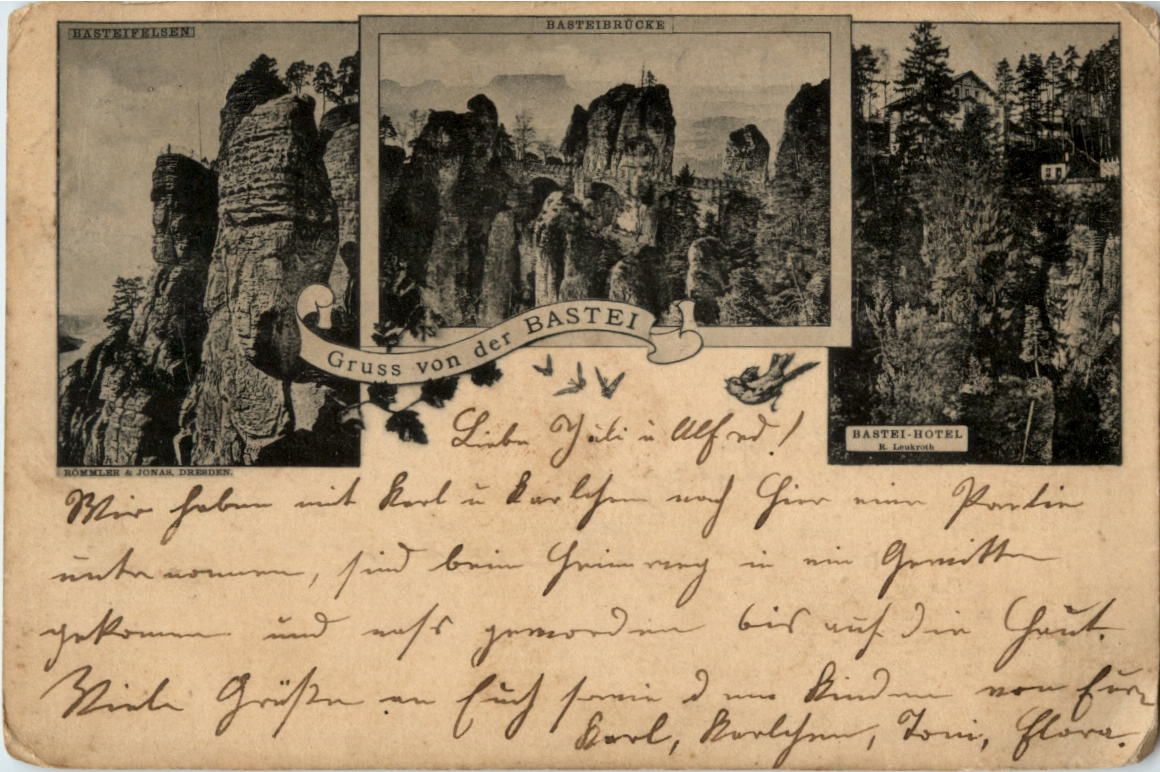 BASTEIFELSEN
BASTEIBRÜCKE
Gruss von der BASTEI
BASTEI-HOTEL
R. Leukroth
RÖMMLER & JONAS, DRESDEN.
Liebe Juli u Alfred!
Wir haben mit Karl u Karlchen nach hier eine Partie
unternommen, sind beim Heimweg in ein Gewitter
gekommen und nass geworden bis auf die Haut.
Viele Grüße an Euch sowie den Kindern von Eure
Karl, Karlchen, Toni, Flora.